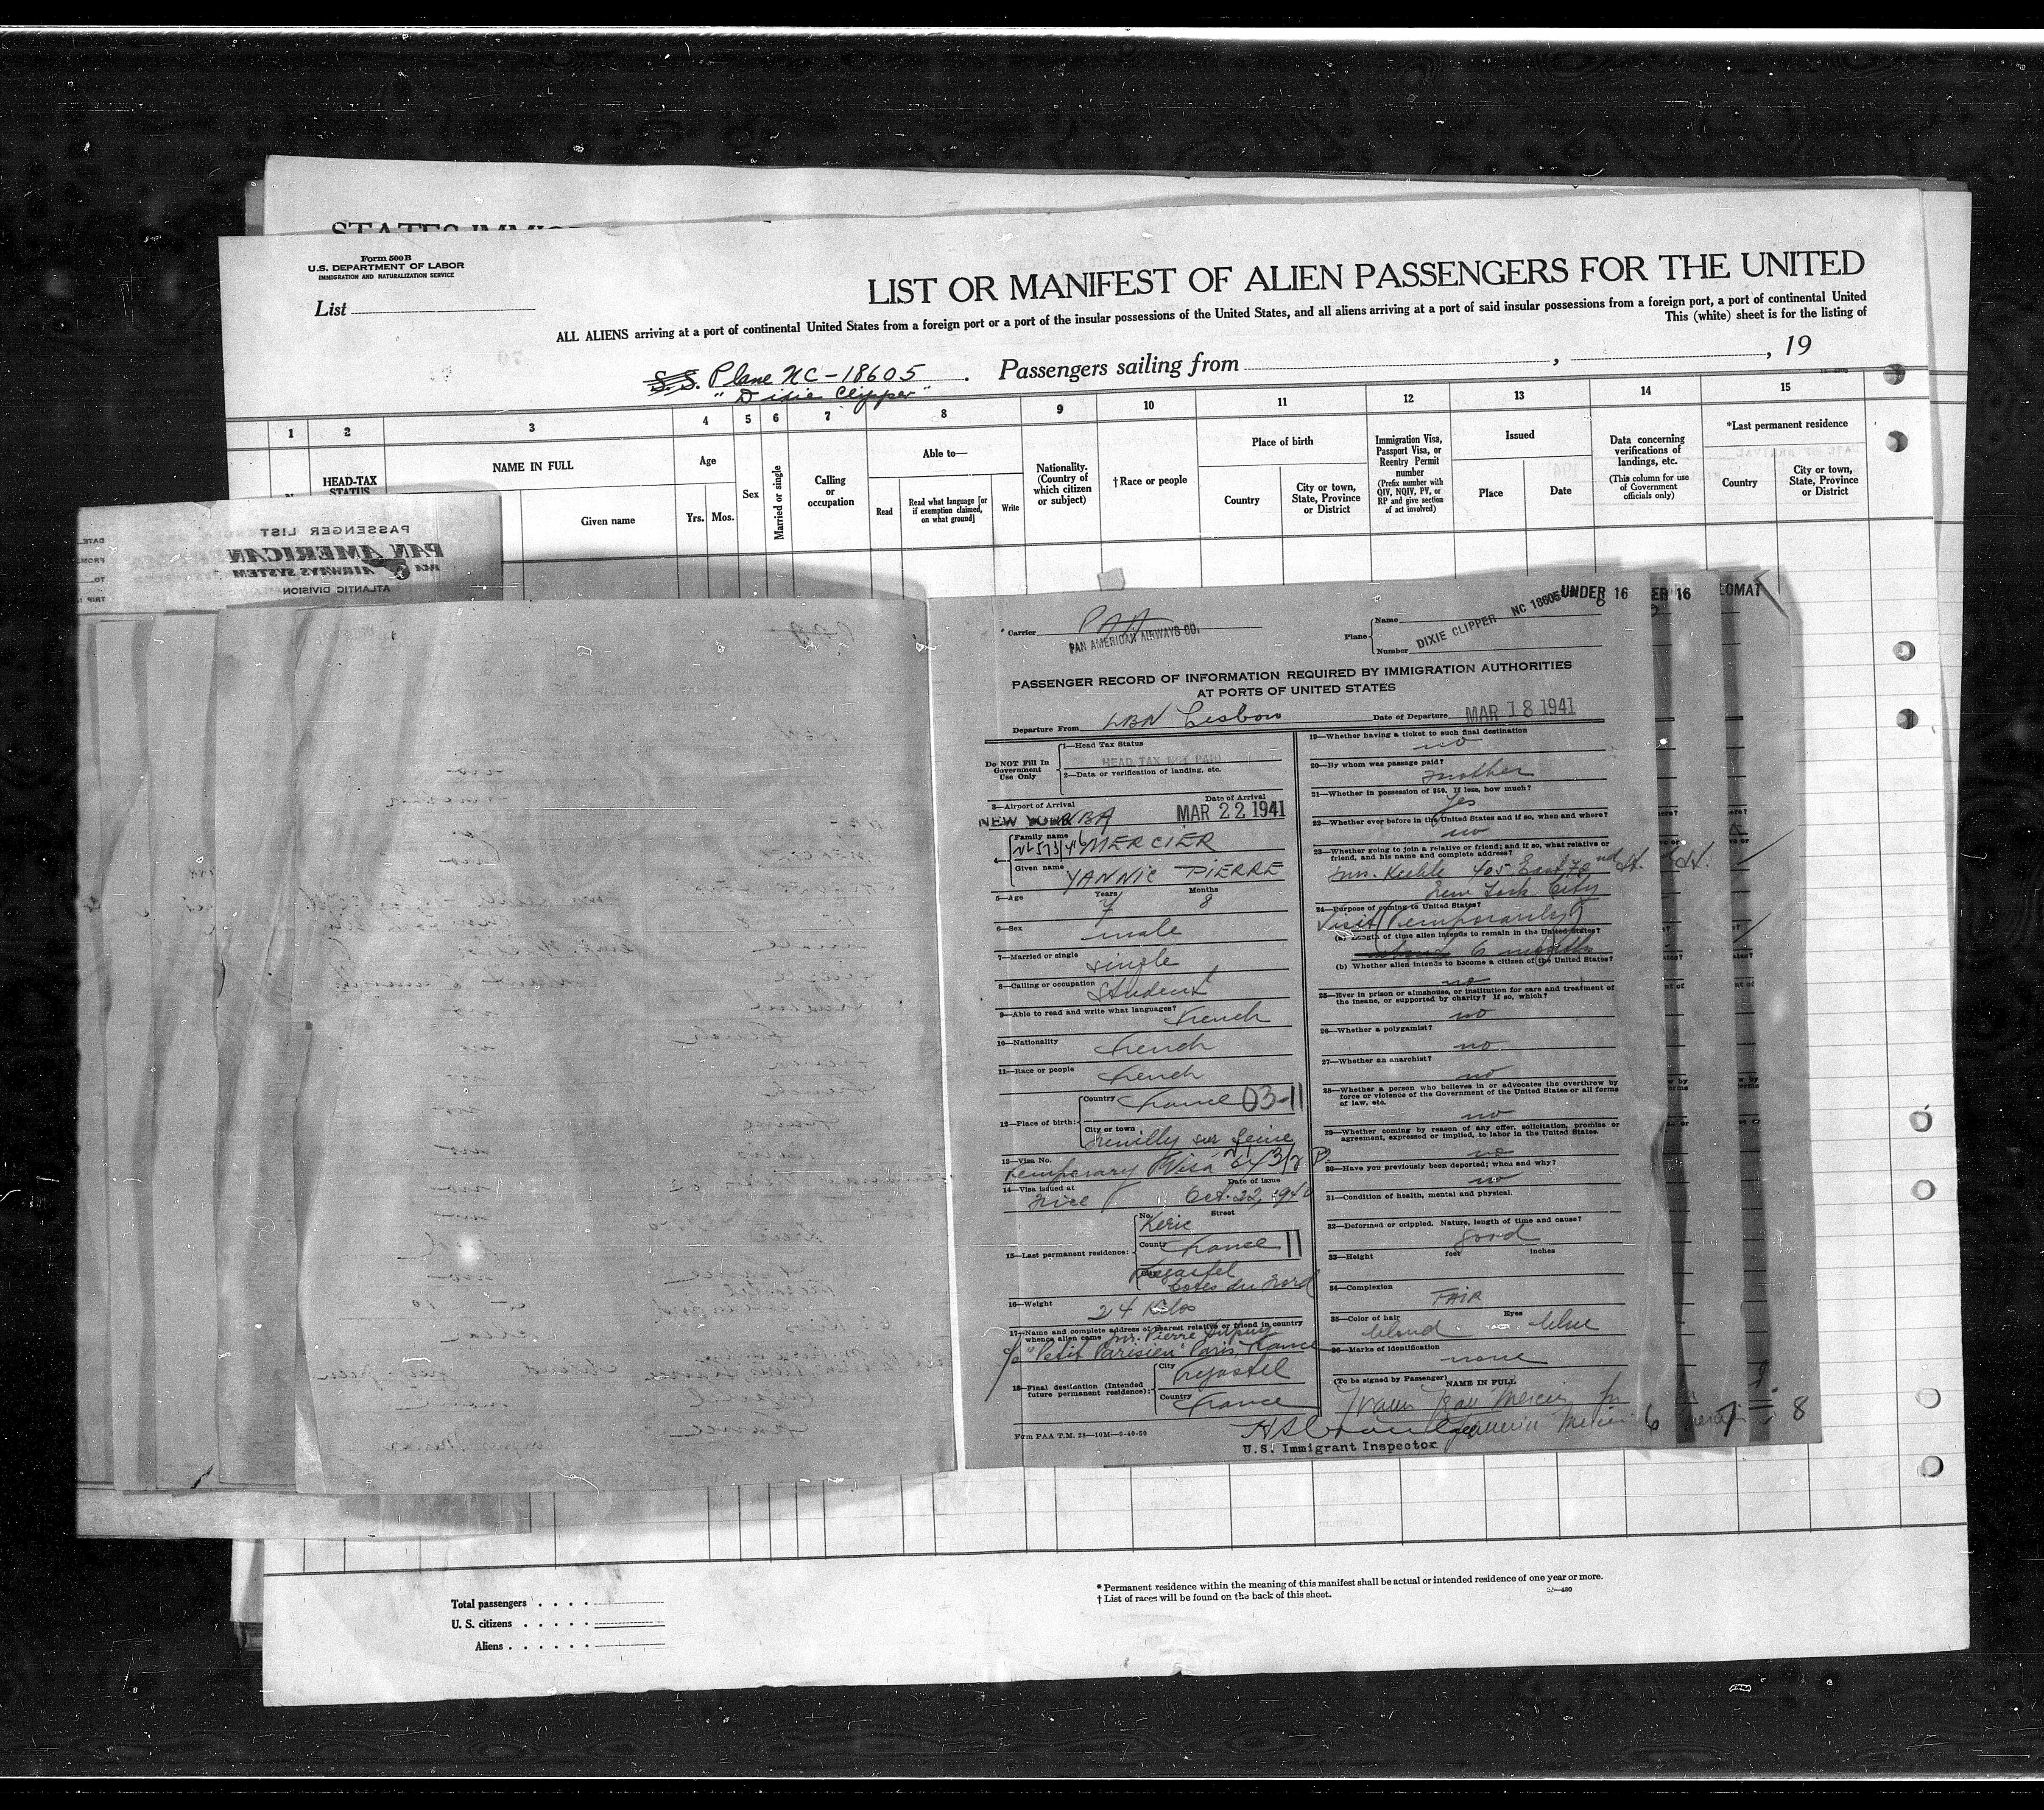 Form 500 B
U.S. DEPARTMENT OF LABOR
IMMIGRATION AND NATURALIZATION SERVICE
List
LIST OR MANIFEST OF ALIEN PASSENGERS FOR THE UNITED
ALL ALIENS arriving at a port of continental United States from a foreign port or a port of the insular possessions of the United States, and all aliens arriving at a port of said insular possessions from a foreign port, a port of continental United
This (white) sheet is for the listing of
S.S. Plane NC-18605 . Passengers sailing from , , 19
"Dixie Clipper"
1 2 3 4 5 6 7 8 9 10 11 12 13 14 15
HEAD-TAX
STATUS
NAME IN FULL
Given name
Age
Yrs. Mos.
Sex
Married or single
Calling
or
occupation
Able to—
Read
Read what language [or
if exemption claimed,
on what ground]
Write
Nationality.
(Country of
which citizen
or subject)
†Race or people
Place of birth
Country
City or town,
State, Province
or District
Immigration Visa,
Passport Visa, or
Reentry Permit
number
(Prefix number with
QIV, NQIV, PV, or
RP and give section
of act involved)
Issued
Place
Date
Data concerning
verifications of
landings, etc.
(This column for use
of Government
officials only)
*Last permanent residence
Country
City or town,
State, Province
or District
PASSENGER LIST
PAN AMERICAN
AIRWAYS SYSTEM
ATLANTIC DIVISION
DATE
FROM
TO
TRIP
UNDER 16
ER 16
LOMAT
* Carrier PAA
PAN AMERICAN AIRWAYS CO.
Plane
Name
Number DIXIE CLIPPER NC 18605
PASSENGER RECORD OF INFORMATION REQUIRED BY IMMIGRATION AUTHORITIES
AT PORTS OF UNITED STATES
Departure From LBN Lisbon Date of Departure MAR 18 1941
Do NOT Fill In
Government
Use Only
1—Head Tax Status
HEAD TAX NOT PAID
2—Data or verification of landing, etc.
3—Airport of Arrival Date of Arrival
NEW YORK MAR 22 1941
4— Family name MERCIER
Given name YANNIC PIERRE
5—Age Years 7 Months 8
6—Sex male
7—Married or single single
8—Calling or occupation Student
9—Able to read and write what languages? French
10—Nationality French
11—Race or people French
12—Place of birth: Country France 03-11
City or town Neuilly sur Seine
13—Visa No. Temporary Visa
14—Visa issued at Date of issue
Nice Oct. 22, 1940
15—Last permanent residence: No. Street
Country France 11
Cotes du Nord
16—Weight 24 Kilos
17—Name and complete address of nearest relative or friend in country
whence alien came Mr. Pierre Dupuy
c/o "Petit Parisien" Paris, France
18—Final destination (Intended
future permanent residence): City
Country France
Form PAA T.M. 28—10M—9-40-50
19—Whether having a ticket to such final destination
no
20—By whom was passage paid?
mother
21—Whether in possession of $50. If less, how much?
yes
22—Whether ever before in the United States and if so, when and where?
no
23—Whether going to join a relative or friend; and if so, what relative or
friend, and his name and complete address?
405 East 72nd St.
New York City
24—Purpose of coming to United States?
Visit (Temporarily)
(a) Length of time alien intends to remain in the United States?
6 months
(b) Whether alien intends to become a citizen of the United States?
no
25—Ever in prison or almshouse, or institution for care and treatment of
the insane, or supported by charity? If so, which?
no
26—Whether a polygamist?
no
27—Whether an anarchist?
no
28—Whether a person who believes in or advocates the overthrow by
force or violence of the Government of the United States or all forms
of law, etc.
no
29—Whether coming by reason of any offer, solicitation, promise or
agreement, expressed or implied, to labor in the United States.
no
30—Have you previously been deported; when and why?
no
31—Condition of health, mental and physical.
32—Deformed or crippled. Nature, length of time and cause?
good
33—Height feet inches
34—Complexion
FAIR
35—Color of hair Eyes
blond blue
36—Marks of identification
none
(To be signed by Passenger) NAME IN FULL
Mercier
6 7 8
U.S. Immigrant Inspector
Total passengers
U. S. citizens
Aliens
* Permanent residence within the meaning of this manifest shall be actual or intended residence of one year or more.
† List of races will be found on the back of this sheet.